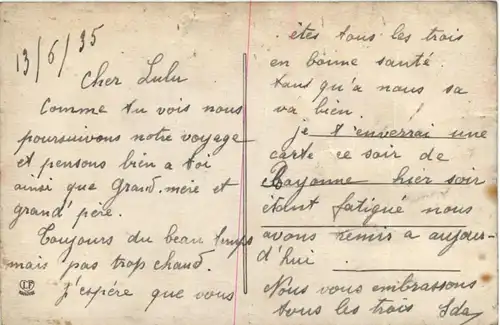 13/6/35
Cher Lulu
Comme tu vois nous
poursuivons notre voyage
et pensons bien a toi
ainsi que Grand-mère et
grand'père.
Toujours du beau temps
mais pas trop chaud.
J'espére que vous
êtes tous les trois
en bonne santé
tant qu'a nous sa
va bien.
je t'enverrai une
carte ce soir de
Bayonne hier soir
étant fatigué nous
avons remir a aujour-
d'hui
Nous vous embrassons
tous les trois Ida
LF